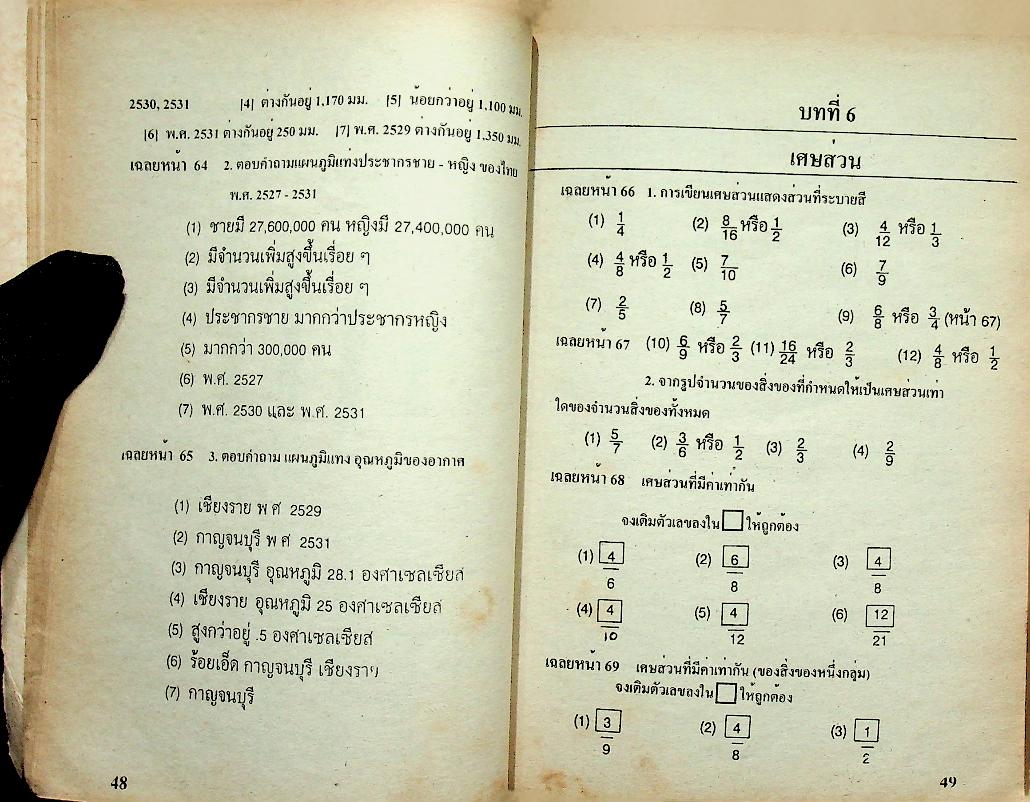 2530, 2531 [4] ต่างกันอยู่ 1,170 มม. [5] น้อยกว่าอยู่ 1,100 มม.
[6] พ.ศ. 2531 ต่างกันอยู่ 250 มม. [7] พ.ศ. 2529 ต่างกันอยู่ 1,350 มม.
เฉลยหน้า 64 2. ตอบคำถามแผนภูมิแท่งประชากรชาย - หญิง ของไทย
พ.ศ. 2527 - 2531
(1) ชายมี 27,600,000 คน หญิงมี 27,400,000 คน
(2) มีจำนวนเพิ่มสูงขึ้นเรื่อย ๆ
(3) มีจำนวนเพิ่มสูงขึ้นเรื่อย ๆ
(4) ประชากรชาย มากกว่าประชากรหญิง
(5) มากกว่า 300,000 คน
(6) พ.ศ. 2527
(7) พ.ศ. 2530 และ พ.ศ. 2531
เฉลยหน้า 65 3. ตอบคำถาม แผนภูมิแทง อุณหภูมิของอากาศ
(1) เชียงราย พ ศ 2529
(2) กาญจนบุรี พ ศ 2531
(3) กาญจนบุรี อุณหภูมิ 28.1 องศาเซลเซียส
(4) เชียงราย อุณหภูมิ 25 องศาเซลเซียส
(5) สูงกว่าอยู่ .5 องศาเซลเซียส
(6) ร้อยเอ็ด กาญจนบุรี เชียงราย
(7) กาญจนบุรี
48
บทที่ 6
เศษส่วน
เฉลยหน้า 66 1. การเขียนเศษส่วนแสดงส่วนที่ระบายสี
(1) 1/4 (2) 8/16 หรือ 1/2 (3) 4/12 หรือ 1/3
(4) 4/8 หรือ 1/2 (5) 7/10 (6) 7/9
(7) 2/5 (8) 5/7 (9) 6/8 หรือ 3/4 (หน้า 67)
เฉลยหน้า 67 (10) 6/9 หรือ 2/3 (11) 16/24 หรือ 2/3 (12) 4/8 หรือ 1/2
2. จากรูปจำนวนของสิ่งของที่กำหนดให้เป็นเศษส่วนเท่า
ใดของจำนวนสิ่งของทั้งหมด
(1) 5/7 (2) 3/6 หรือ 1/2 (3) 2/3 (4) 2/9
เฉลยหน้า 68 เศษส่วนที่มีค่าเท่ากัน
จงเติมตัวเลขลงใน □ ให้ถูกต้อง
(1) 4/6 (2) 6/8 (3) 4/8
(4) 4/10 (5) 4/12 (6) 12/21
เฉลยหน้า 69 เศษส่วนที่มีค่าเท่ากัน (ของสิ่งของหนึ่งกลุ่ม)
จงเติมตัวเลขลงใน □ ให้ถูกต้อง
(1) 3/9 (2) 4/8 (3) 1/2
49